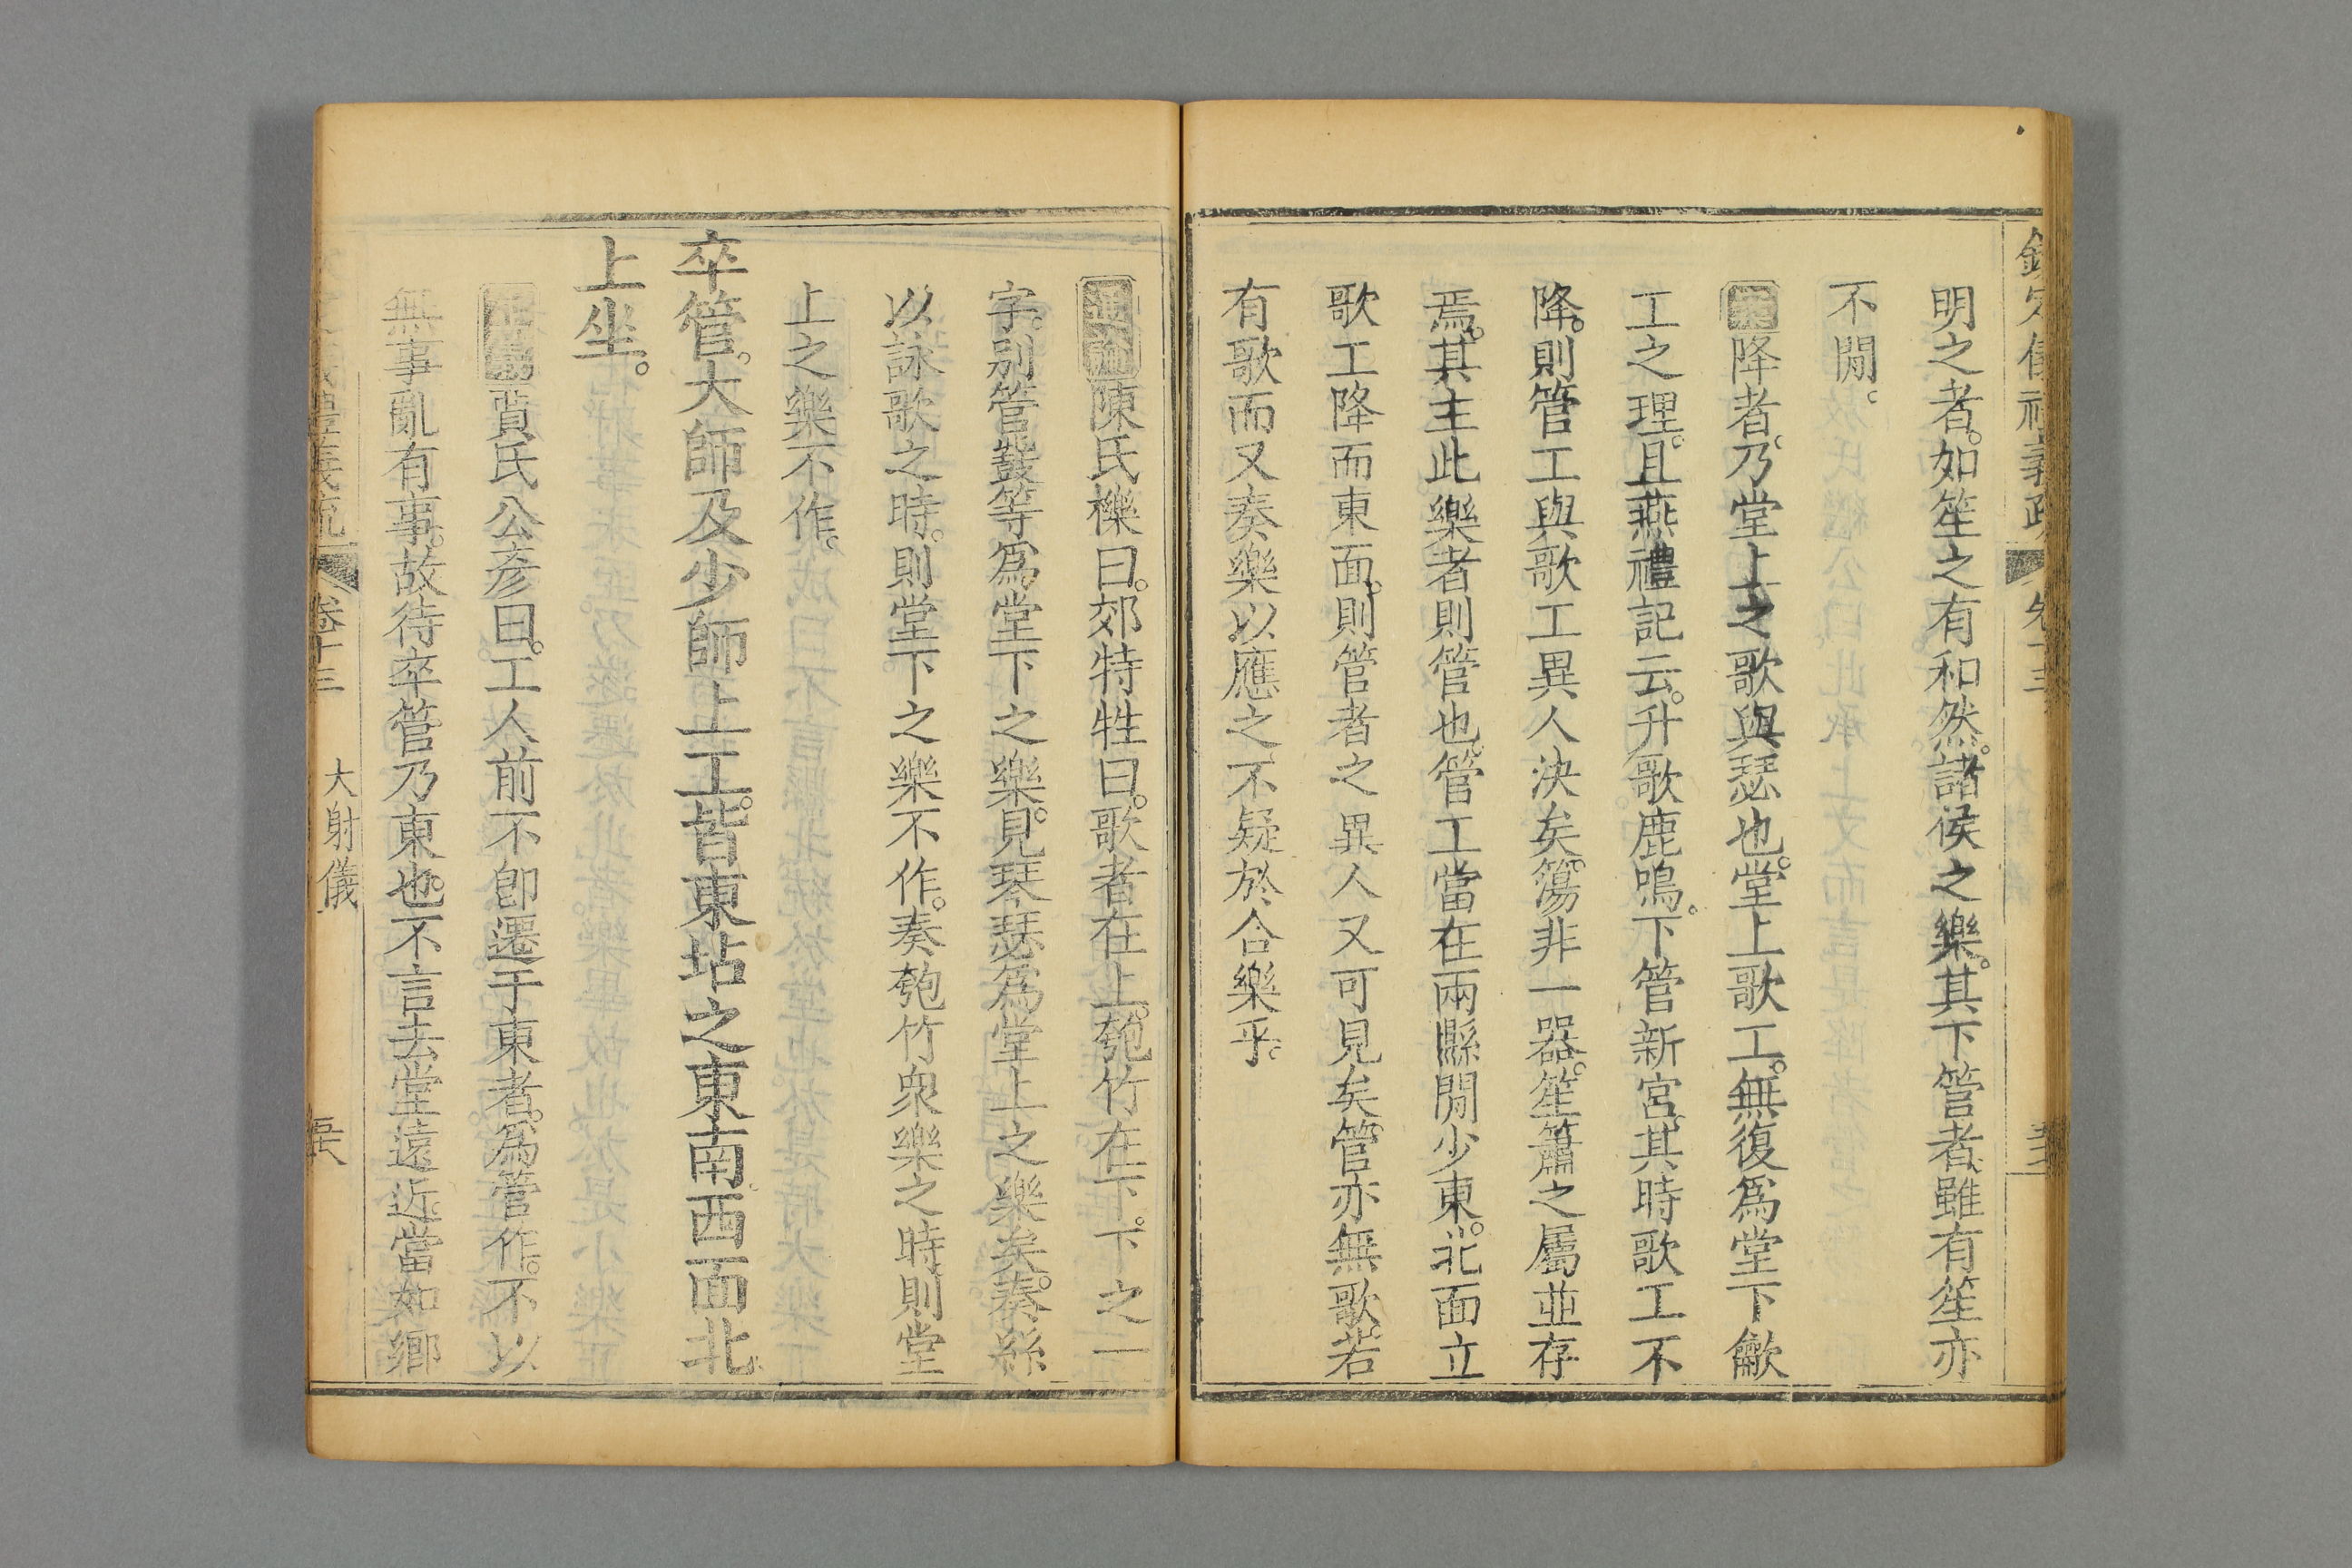 欽定儀禮義疏 卷十三
明之者如笙之有和然諸侯之樂其下管者雖有笙亦
不閒
案降者乃堂上之歌與瑟也堂上歌工無復爲堂下歈
工之理且燕禮記云升歌鹿鳴下管新宮其時歌工不
降則管工與歌工異人決矣簜非一器笙簫之屬並存
焉其主此樂者則管也管工當在兩縣閒少東北面立
歌工降而東面則管者之異人又可見矣管亦無歌若
有歌而又奏樂以應之不疑於合樂乎
通論陳氏櫟曰郊特牲曰歌者在上匏竹在下下之一
字別管鼗等爲堂下之樂見琴瑟爲堂上之樂矣奏絲
以詠歌之時則堂下之樂不作奏匏竹衆樂之時則堂
上之樂不作
卒管大師及少師上工皆東坫之東南西面北
上坐
正義賈氏公彥曰工人前不卽遷于東者爲管作不以
無事亂有事故待卒管乃東也不言去堂遠近當如鄉
禮義疏 卷十三 大射儀